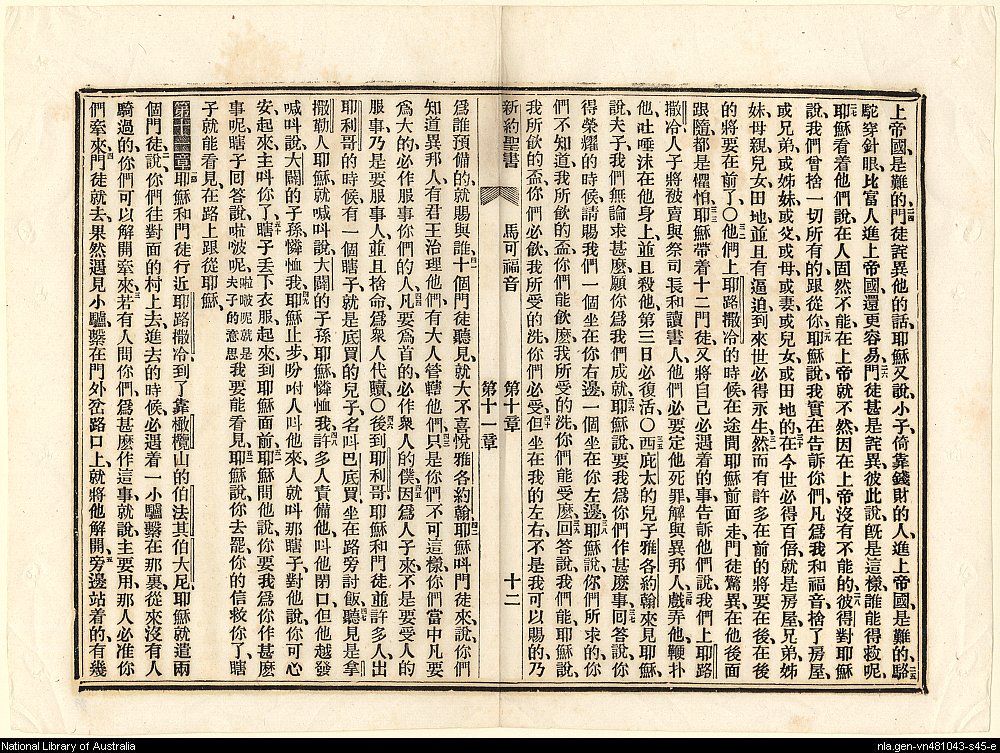 上帝國是難的、門徒詫異他的話、耶穌又說、小子、倚靠錢財的人進上帝國是難的、駱
駝穿針眼、比富人進上帝國還更容易、門徒甚是詫異、彼此說、旣是這樣、誰能得救呢、
耶穌看着他們說、在人固然不能、在上帝就不然、因在上帝沒有不能的、彼得對耶穌
說、我們曾捨一切所有的、跟從你、耶穌說、我實在告訴你們、凡爲我和福音、捨了房屋、
或兄弟、或姊妹、或父、或母、或妻、或兒女、或田地的、在今世必得百倍、就是房屋兄弟姊
妹母親兒女田地、並且有逼迫、到來世必得永生、然而有許多在前的將要在後、在後
的將要在前了、○他們上耶路撒冷的時候、在途間耶穌前面走、門徒驚異、在他後面
跟隨都是懼怕、耶穌帶着十二門徒、又將自己必遇着的事告訴他們說、我們上耶路
撒冷、人子將被賣與祭司長和讀書人、他們必要定他死罪、解與異邦人、戲弄他、鞭扑
他、吐唾沫在他身上、並且殺他、第三日必復活、○西庇太的兒子雅各約翰來見耶穌
說、夫子、我們無論求甚麽、願你爲我們成就、耶穌說、要我爲你們作甚麽事、回答說、你
得榮耀的時候、請賜我們一個坐在你右邊、一個坐在你左邊、耶穌說、你們所求的、你
們不知道、我所飲的盃、你們能飲麽、我所受的洗、你們能受麽、回答說、我們能、耶穌說、
我所飲的盃、你們必飲、我所受的洗、你們必受、但坐在我的左右、不是我可以賜的、乃
新約聖書 馬可福音 第十章 第十一章 十二
爲誰預備的、就賜與誰、十個門徒聽見、就大不喜悅雅各約翰、耶穌呌門徒來、說、你們
知道異邦人有君王治理他們、有大人管轄他們、只是你們不可這樣、你們當中凡要
爲大的、必作服事你們的人、凡要爲首的、必作衆人的僕、因爲人子來、不是要受人的
服事、乃是要服事人、並且捨命爲衆人代贖、○後到耶利哥、耶穌和門徒並許多人出
耶利哥的時候、有一個瞎子、就是底買的兒子、名呌巴底買、坐在路旁討飯、聽見是拿
撒勒人耶穌、就喊呌說、大闢的子孫耶穌憐恤我、許多人責備他、呌他閉口、但他越發
喊呌說、大闢的子孫憐恤我、耶穌止步、吩咐人呌他來、人就呌那瞎子、對他說、你可心
安、起來、主呌你了、瞎子丟下衣服、起來到耶穌面前、耶穌問他說、你要我爲你作甚麽
事呢、瞎子回答說、啦啵呢、啦啵呢就是夫子的意思我要能看見、耶穌說、你去罷、你的信救你了、瞎
子就能看見、在路上跟從耶穌、
第十一章耶穌和門徒行近耶路撒冷、到了靠橄欖山的伯法其伯大尼、耶穌就遣兩
個門徒、說、你們往對面的村上去、進去的時候、必遇着一小驢繫在那裏、從來沒有人
騎過的、你們可以解開牽來、若有人問你們爲甚麽作這事、就說、主要用、那人必准你
們牽來、門徒就去、果然遇見小驢繫在門外岔路口上、就將他解開、旁邊站着的、有幾
National Library of Australia
nla.gen-vn481043-s45-e